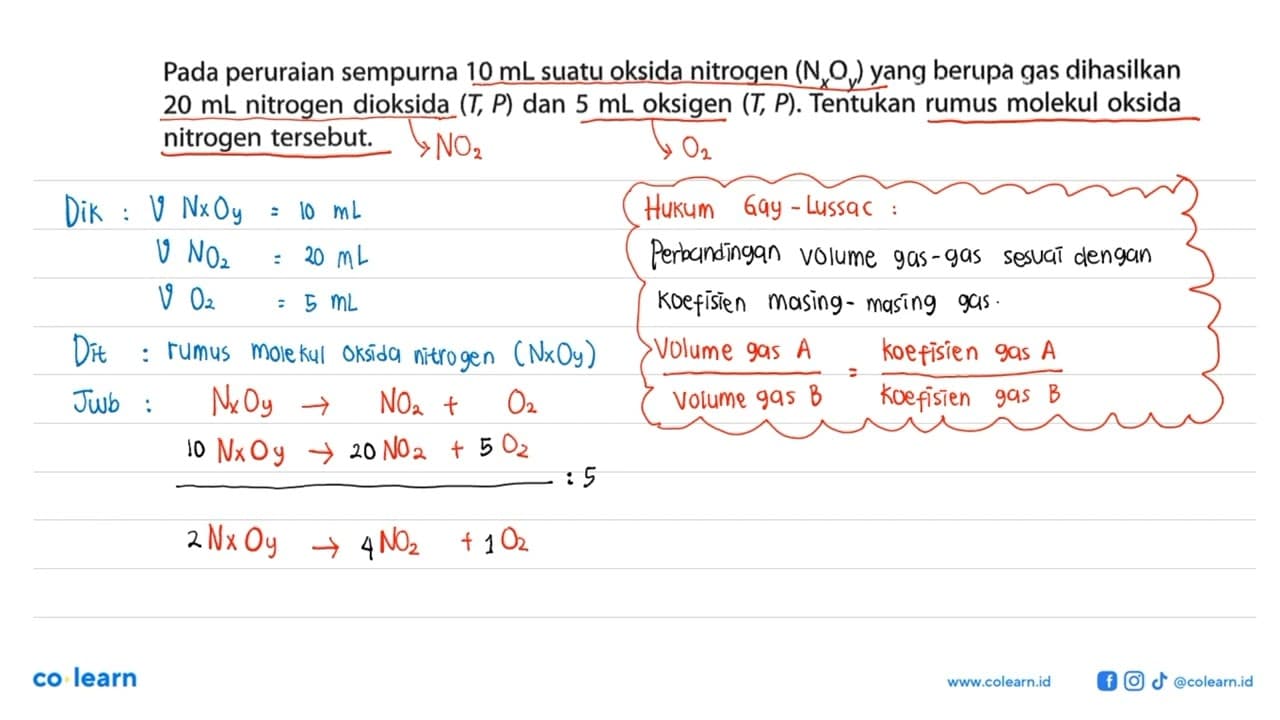 Pada peruraian sempurna 10 mL suatu oksida nitrogen (NₓOᵧ) yang berupa gas dihasilkan
20 mL nitrogen dioksida (T, P) dan 5 mL oksigen (T, P). Tentukan rumus molekul oksida
nitrogen tersebut.
NO₂
O₂
Dik : V NxOy = 10 mL
V NO₂ = 20 mL
V O₂ = 5 mL
Dit : rumus molekul oksida nitrogen (NxOy)
Jwb : NxOy → NO₂ + O₂
10 NxOy → 20 NO₂ + 5 O₂
: 5
2 NxOy → 4 NO₂ + 1 O₂
Hukum Gay-Lussac :
Perbandingan volume gas-gas sesuai dengan
koefisien masing-masing gas.
Volume gas A = koefisien gas A
Volume gas B koefisien gas B
co learn
www.colearn.id
@colearn.id